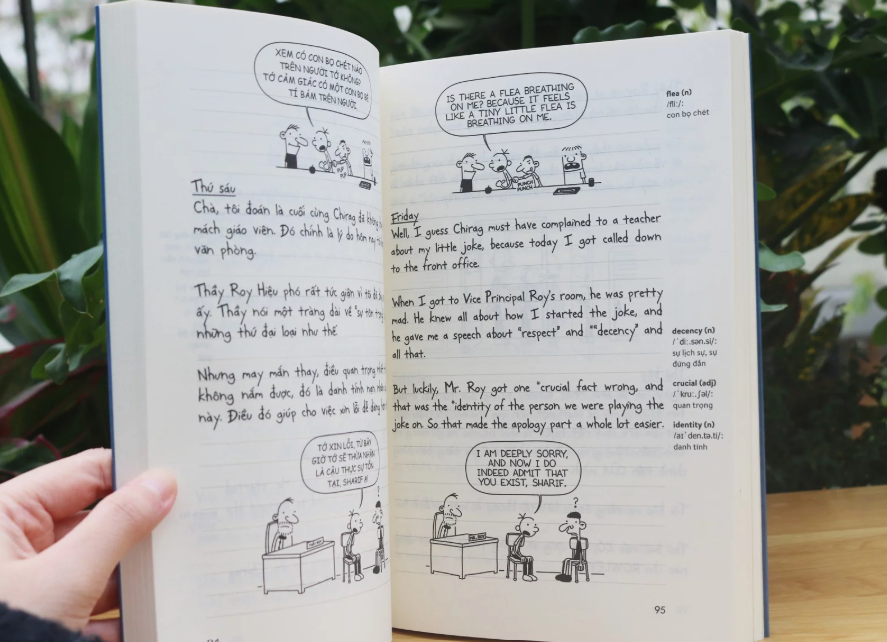 XEM CÓ CON BỌ CHÉT NÀO
TRÊN NGƯỜI TỚ KHÔNG?
TỚ CẢM GIÁC CÓ MỘT CON BỌ BÉ
TÍ BÁM TRÊN NGƯỜI.
Thứ sáu
Chà, tôi đoán là cuối cùng Chirag đã không
mách giáo viên. Đó chính là lý do hôm nay
văn phòng.
Thầy Roy Hiệu phó rất tức giận vì tôi đã
ấy. Thầy nói một tràng dài về "sự tôn
những thứ đại loại như thế.
Nhưng may mắn thay, điều quan trọng
không nắm được, đó là danh tính nạn nhân
này. Điều đó giúp cho việc xin lỗi dễ dàng
TỚ XIN LỖI, TỪ BÂY
GIỜ TỚ SẼ THỪA NHẬN
LÀ CẬU THỰC SỰ TỒN
TẠI, SHARIF Ạ!
IS THERE A FLEA BREATHING
ON ME? BECAUSE IT FEELS
LIKE A TINY LITTLE FLEA IS
BREATHING ON ME.
PUNCH
PUNCH
flea (n)
/fliː/:
con bọ chét
Friday
Well, I guess Chirag must have complained to a teacher
about my little joke, because today I got called down
to the front office.
When I got to Vice Principal Roy's room, he was pretty
mad. He knew all about how I started the joke, and
he gave me a speech about "respect" and "*decency" and
all that.
decency (n)
/ˈdiː.sən.si/:
sự lịch sự, sự
đứng đắn
But luckily, Mr. Roy got one *crucial fact wrong, and
that was the *identity of the person we were playing the
joke on. So that made the apology part a whole lot easier.
crucial (adj)
/ˈkruː.ʃəl/:
quan trọng
identity (n)
/aɪˈden.tə.ti/:
danh tính
I AM DEEPLY SORRY,
AND NOW I DO
INDEED ADMIT THAT
YOU EXIST, SHARIF.
?
95